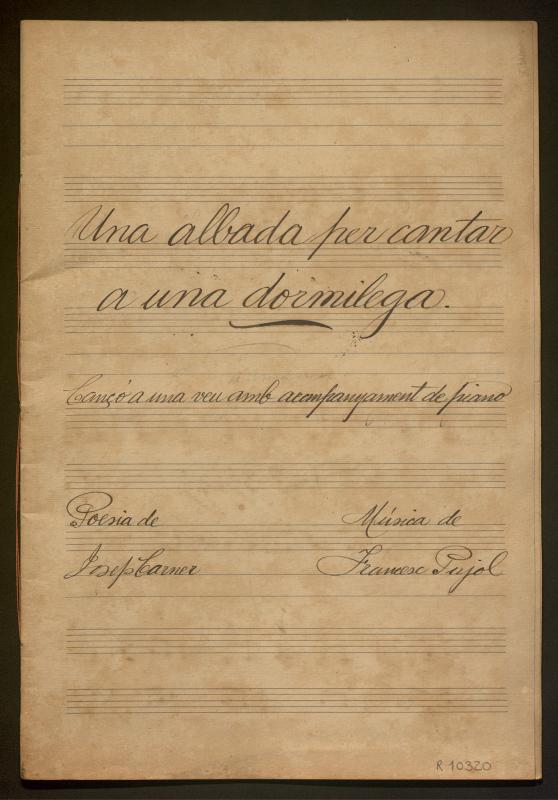 Una albada per cantar
a una dormilega.
Cançó a una veu amb acompanyament de piano
Poesia de Música de
Josep Carner Francesc Pujol
R 10320